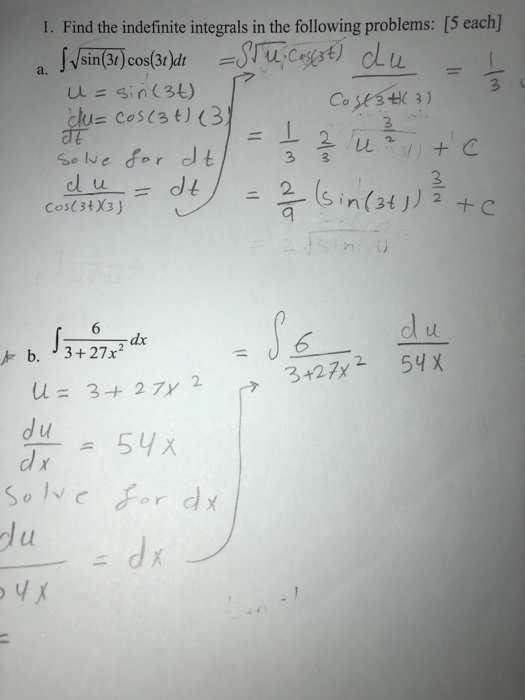 1. Find the indefinite integrals in the following problems: [5 each]
a. ∫√sin(3t) cos(3t)dt = ∫√u · cos(3t) du / cos(3t)(3) = 1/3
u = sin(3t)
du/dt = cos(3t)(3)
= 1/3 2/3 u^3/2 + c
Solve for dt
du/cos(3t)(3) = dt
= 2/9 (sin(3t))^3/2 + c
b. ∫ 6/(3+27x²) dx = ∫ 6/(3+27x²) du/54x
u = 3+27x²
du/dx = 54x
Solve for dx
du/54x = dx
=